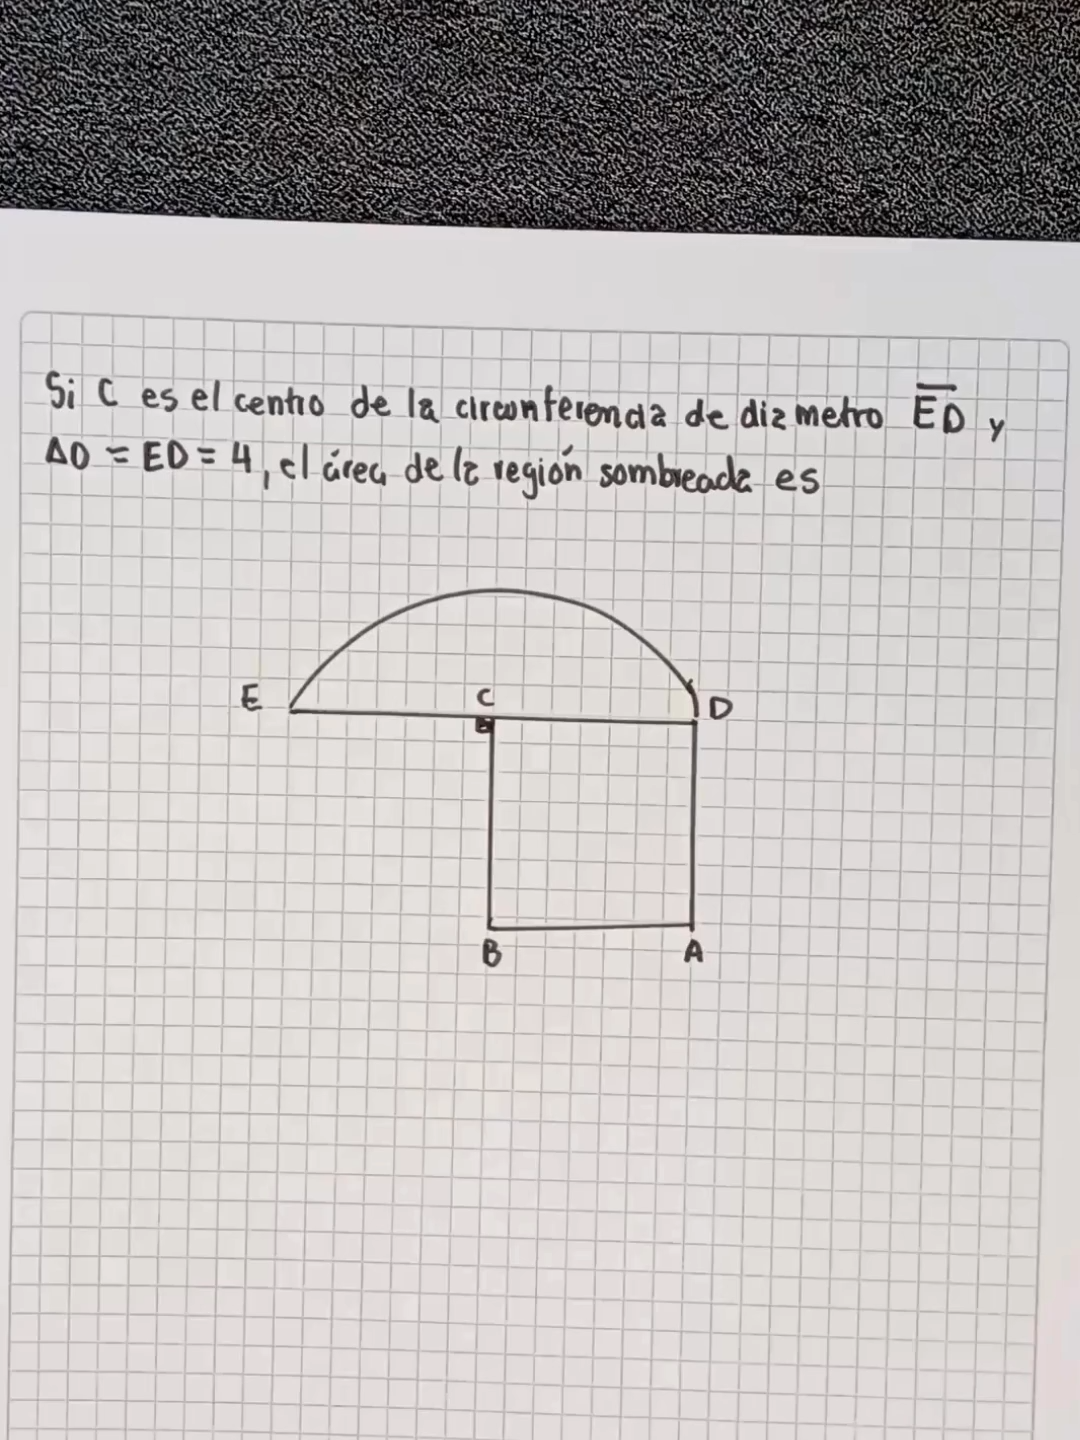 Si C es el centro de la circunferencia de diametro ED y
AD = ED = 4, el área de la región sombreada es
E C D
B A